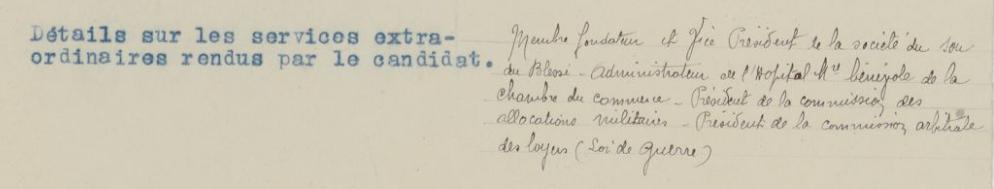 Détails sur les services extra-
ordinaires rendus par le candidat.
Membre fondateur et Vice Président de la société du Sou
du Blessé - Administrateur de l'Hopital Mre bénévole de la
chambre du commerce - Président de la commission des
allocations militaires - Président de la commission arbitrale
des loyers (Loi de Guerre)